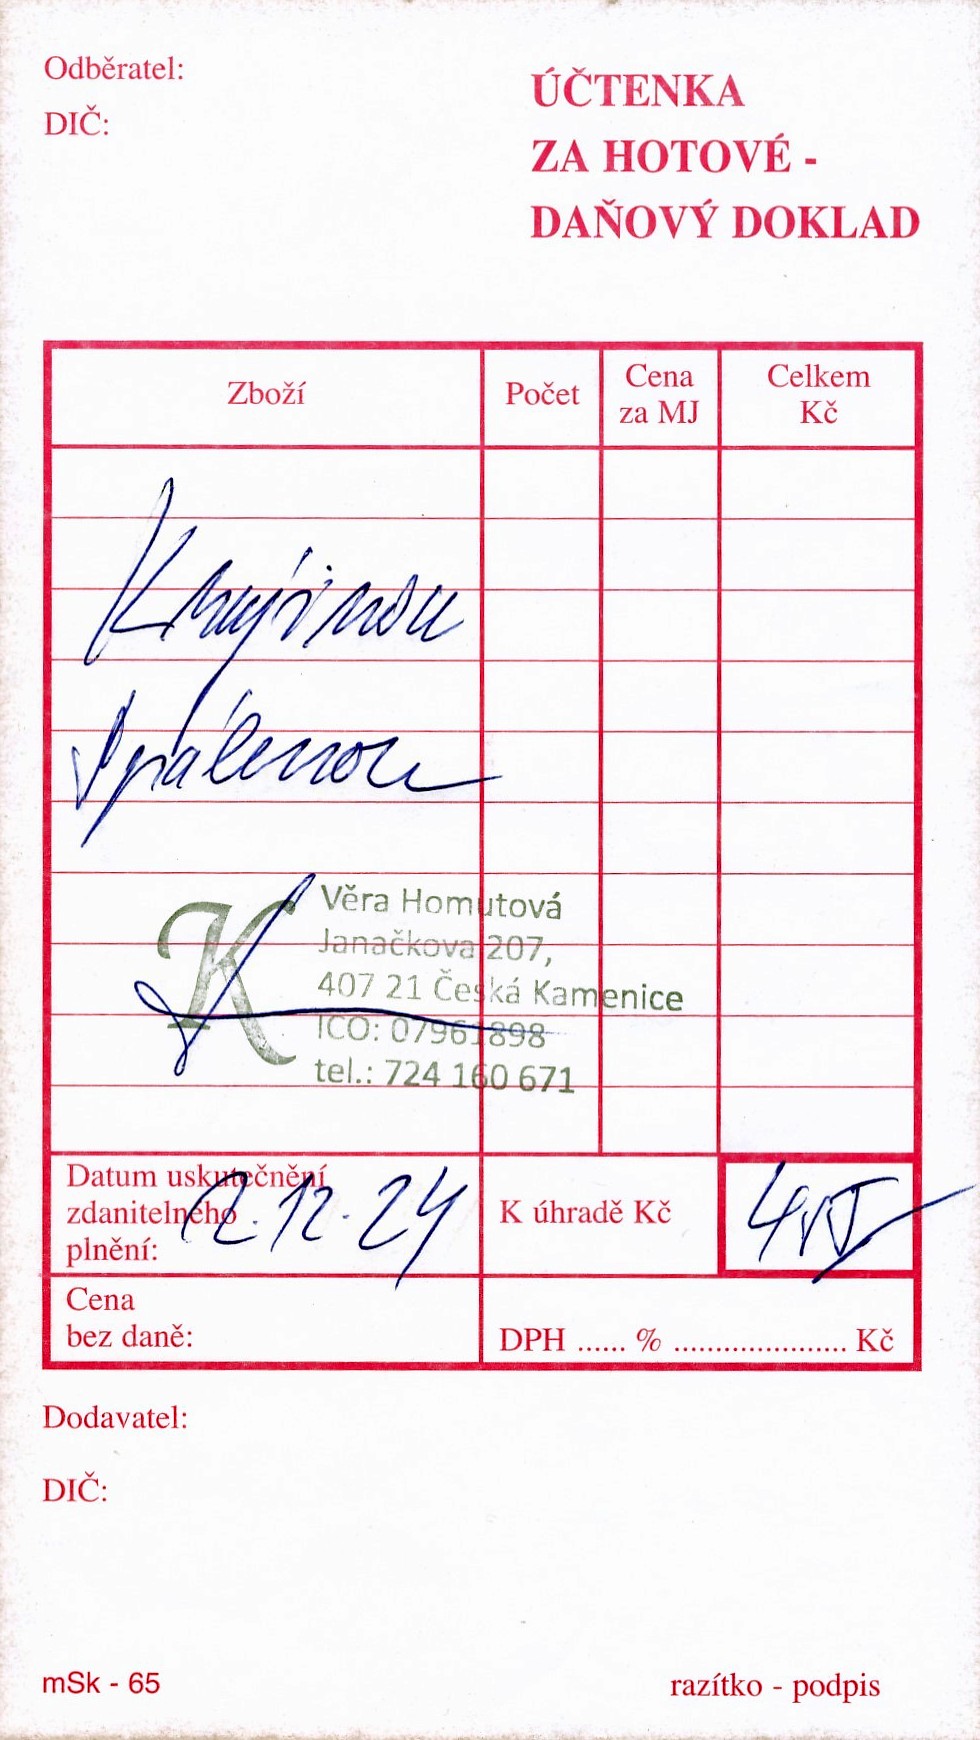 Odběratel:
DIČ:
ÚČTENKA
ZA HOTOVÉ -
DAŇOVÝ DOKLAD
Zboží
Počet
Cena
za MJ
Celkem
Kč
Věra Homutová
Janačkova 207,
407 21 Česká Kamenice
ICO: 07961898
tel.: 724 160 671
Datum uskutečnění
zdanitelného
plnění:
2.12.24
K úhradě Kč
Cena
bez daně:
DPH ...... % ..................... Kč
Dodavatel:
DIČ:
mSk - 65
razítko - podpis